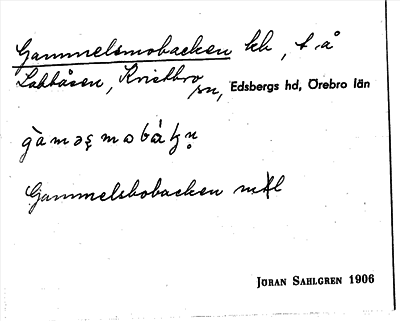 Gammelsmobacken kh, t. å
Lekåsen, Knistbro
sn, Edsbergs hd, Örebro län
gàmǝʂmobákn̥
Gammelsbobacken mtl
JÖRAN SAHLGREN 1906